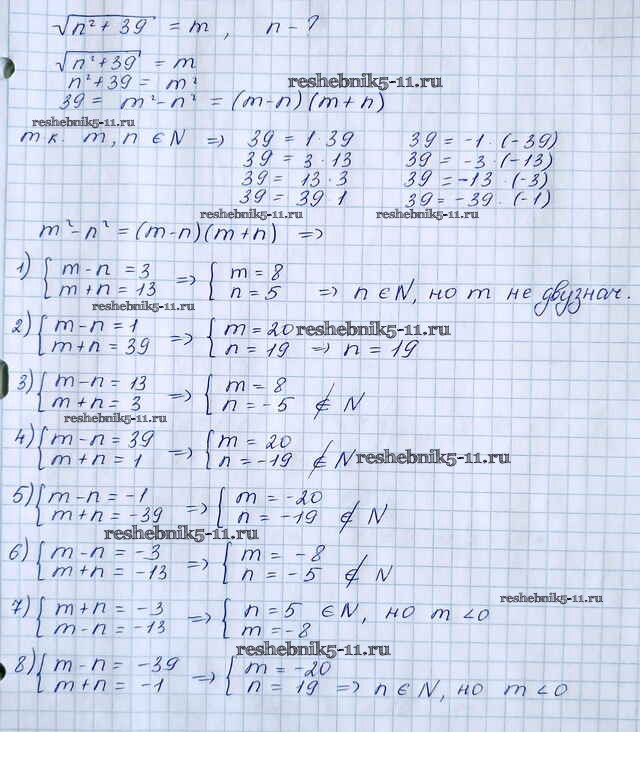 √(n² + 39) = m, n - ?
√(n² + 39) = m
n² + 39 = m²
reshebnik5-11.ru
39 = m² - n² = (m-n)(m+n)
reshebnik5-11.ru
т.к. m, n ∈ N ⇒ 39 = 1·39 39 = -1·(-39)
39 = 3·13 39 = -3·(-13)
39 = 13·3 39 = -13·(-3)
39 = 39·1 39 = -39·(-1)
reshebnik5-11.ru reshebnik5-11.ru
m² - n² = (m-n)(m+n) ⇒
1) { m - n = 3 ⇒ { m = 8
m + n = 13 n = 5 ⇒ n ∈ N, но m не двузнач.
reshebnik5-11.ru
2) { m - n = 1 ⇒ { m = 20 reshebnik5-11.ru
m + n = 39 n = 19 ⇒ n = 19
3) { m - n = 13 ⇒ { m = 8
m + n = 3 n = -5 ∉ N
reshebnik5-11.ru
4) { m - n = 39 ⇒ { m = 20
m + n = 1 n = -19 ∉ N reshebnik5-11.ru
5) { m - n = -1 ⇒ { m = -20
m + n = -39 n = -19 ∉ N
reshebnik5-11.ru
6) { m - n = -3 ⇒ { m = -8
m + n = -13 n = -5 ∉ N
reshebnik5-11.ru
7) { m + n = -3 ⇒ { n = 5 ∈ N, но m < 0
m - n = -13 m = -8
reshebnik5-11.ru
8) { m - n = -39 ⇒ { m = -20
m + n = -1 n = 19 ⇒ n ∈ N, но m < 0